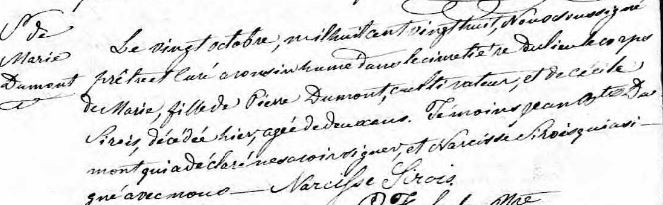 S. de
Marie
Dumont
Le vingt octobre, mil huit cent vingt huit, Nous soussigné
prêtre et curé avons inhumé dans le cimetière du lieu le corps
de Marie, fille de Pierre Dumont, cultivateur, et de Cécile
Sirois, décédée hier, agée de deux ans. Témoins Jean Bte Du
mont qui a déclaré ne savoir signer, et Narcisse Sirois qui a si-
gné avec nous — Narcisse Sirois.
Ptre